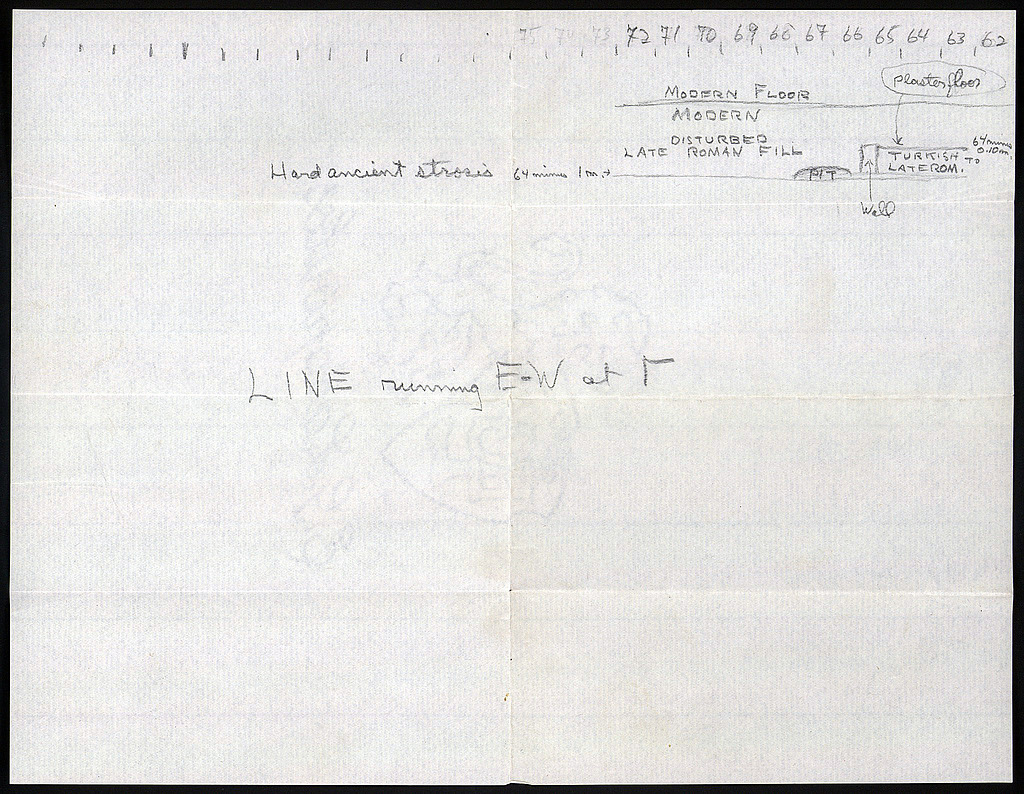 75 74 73 72 71 70 69 68 67 66 65 64 63 62
plaster floor
MODERN FLOOR
MODERN
DISTURBED
LATE ROMAN FILL
64 minus 0.10 m.
TURKISH TO
LATE ROM.
Hard ancient strosis 64 minus 1 m. →
PIT
Wall
LINE running E-W at Γ